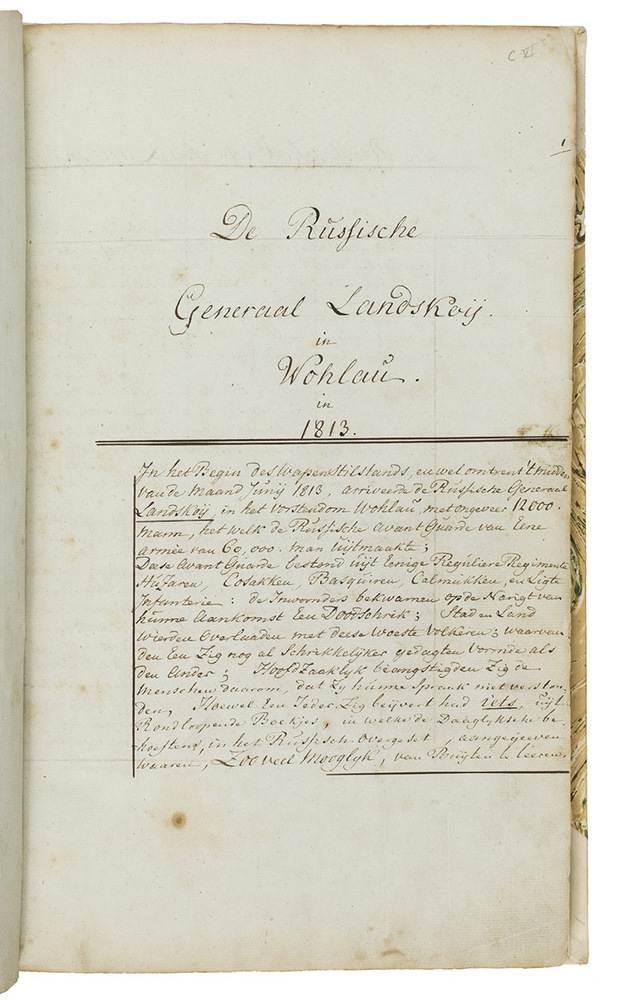 C VI
1
De Russische
Generaal Landskoij.
in
Wohlau.
in
1813.
In het Begin des Wapenstilstands, en wel omtrent 't midden
van de Maand Junij 1813, arriveerde de Russische Generaal
Landskoij, in het vorstendom Wohlau, met ongeveer 12000.
mann, het welk de Russische avant Guarde van Eene
armée van 60,000. man uijtmaakte;
Deese Avant Guarde bestond uijt Eenige Reguliere Regimente
Huzaren, Cosakken, Basquiren, Calmukken, en Ligte
Infanterie: de Inwoonders bekwamen op de Narigt van
hunne Aankomst Een Doodschrik; Stad en Land
wierden Overlaaden met deese woeste Volkeren; waarvan
den Een Zig nog al Schrikkelijker gedagten vormde als
den Ander; Hoofdzaaklyk beangstigden Zig de
Menschen daarom, dat Zy hunne Spraak niet verston-
den, Hoewel Een Ieder Zig beijvert had iets, uijt
Rondloopende Boekjes, in welke de Daaglyksche be-
hoeften, in het Russisch overgeset, aangegeeven
waaren, Zoo veel Mooglyk, van Buijten te leeren.